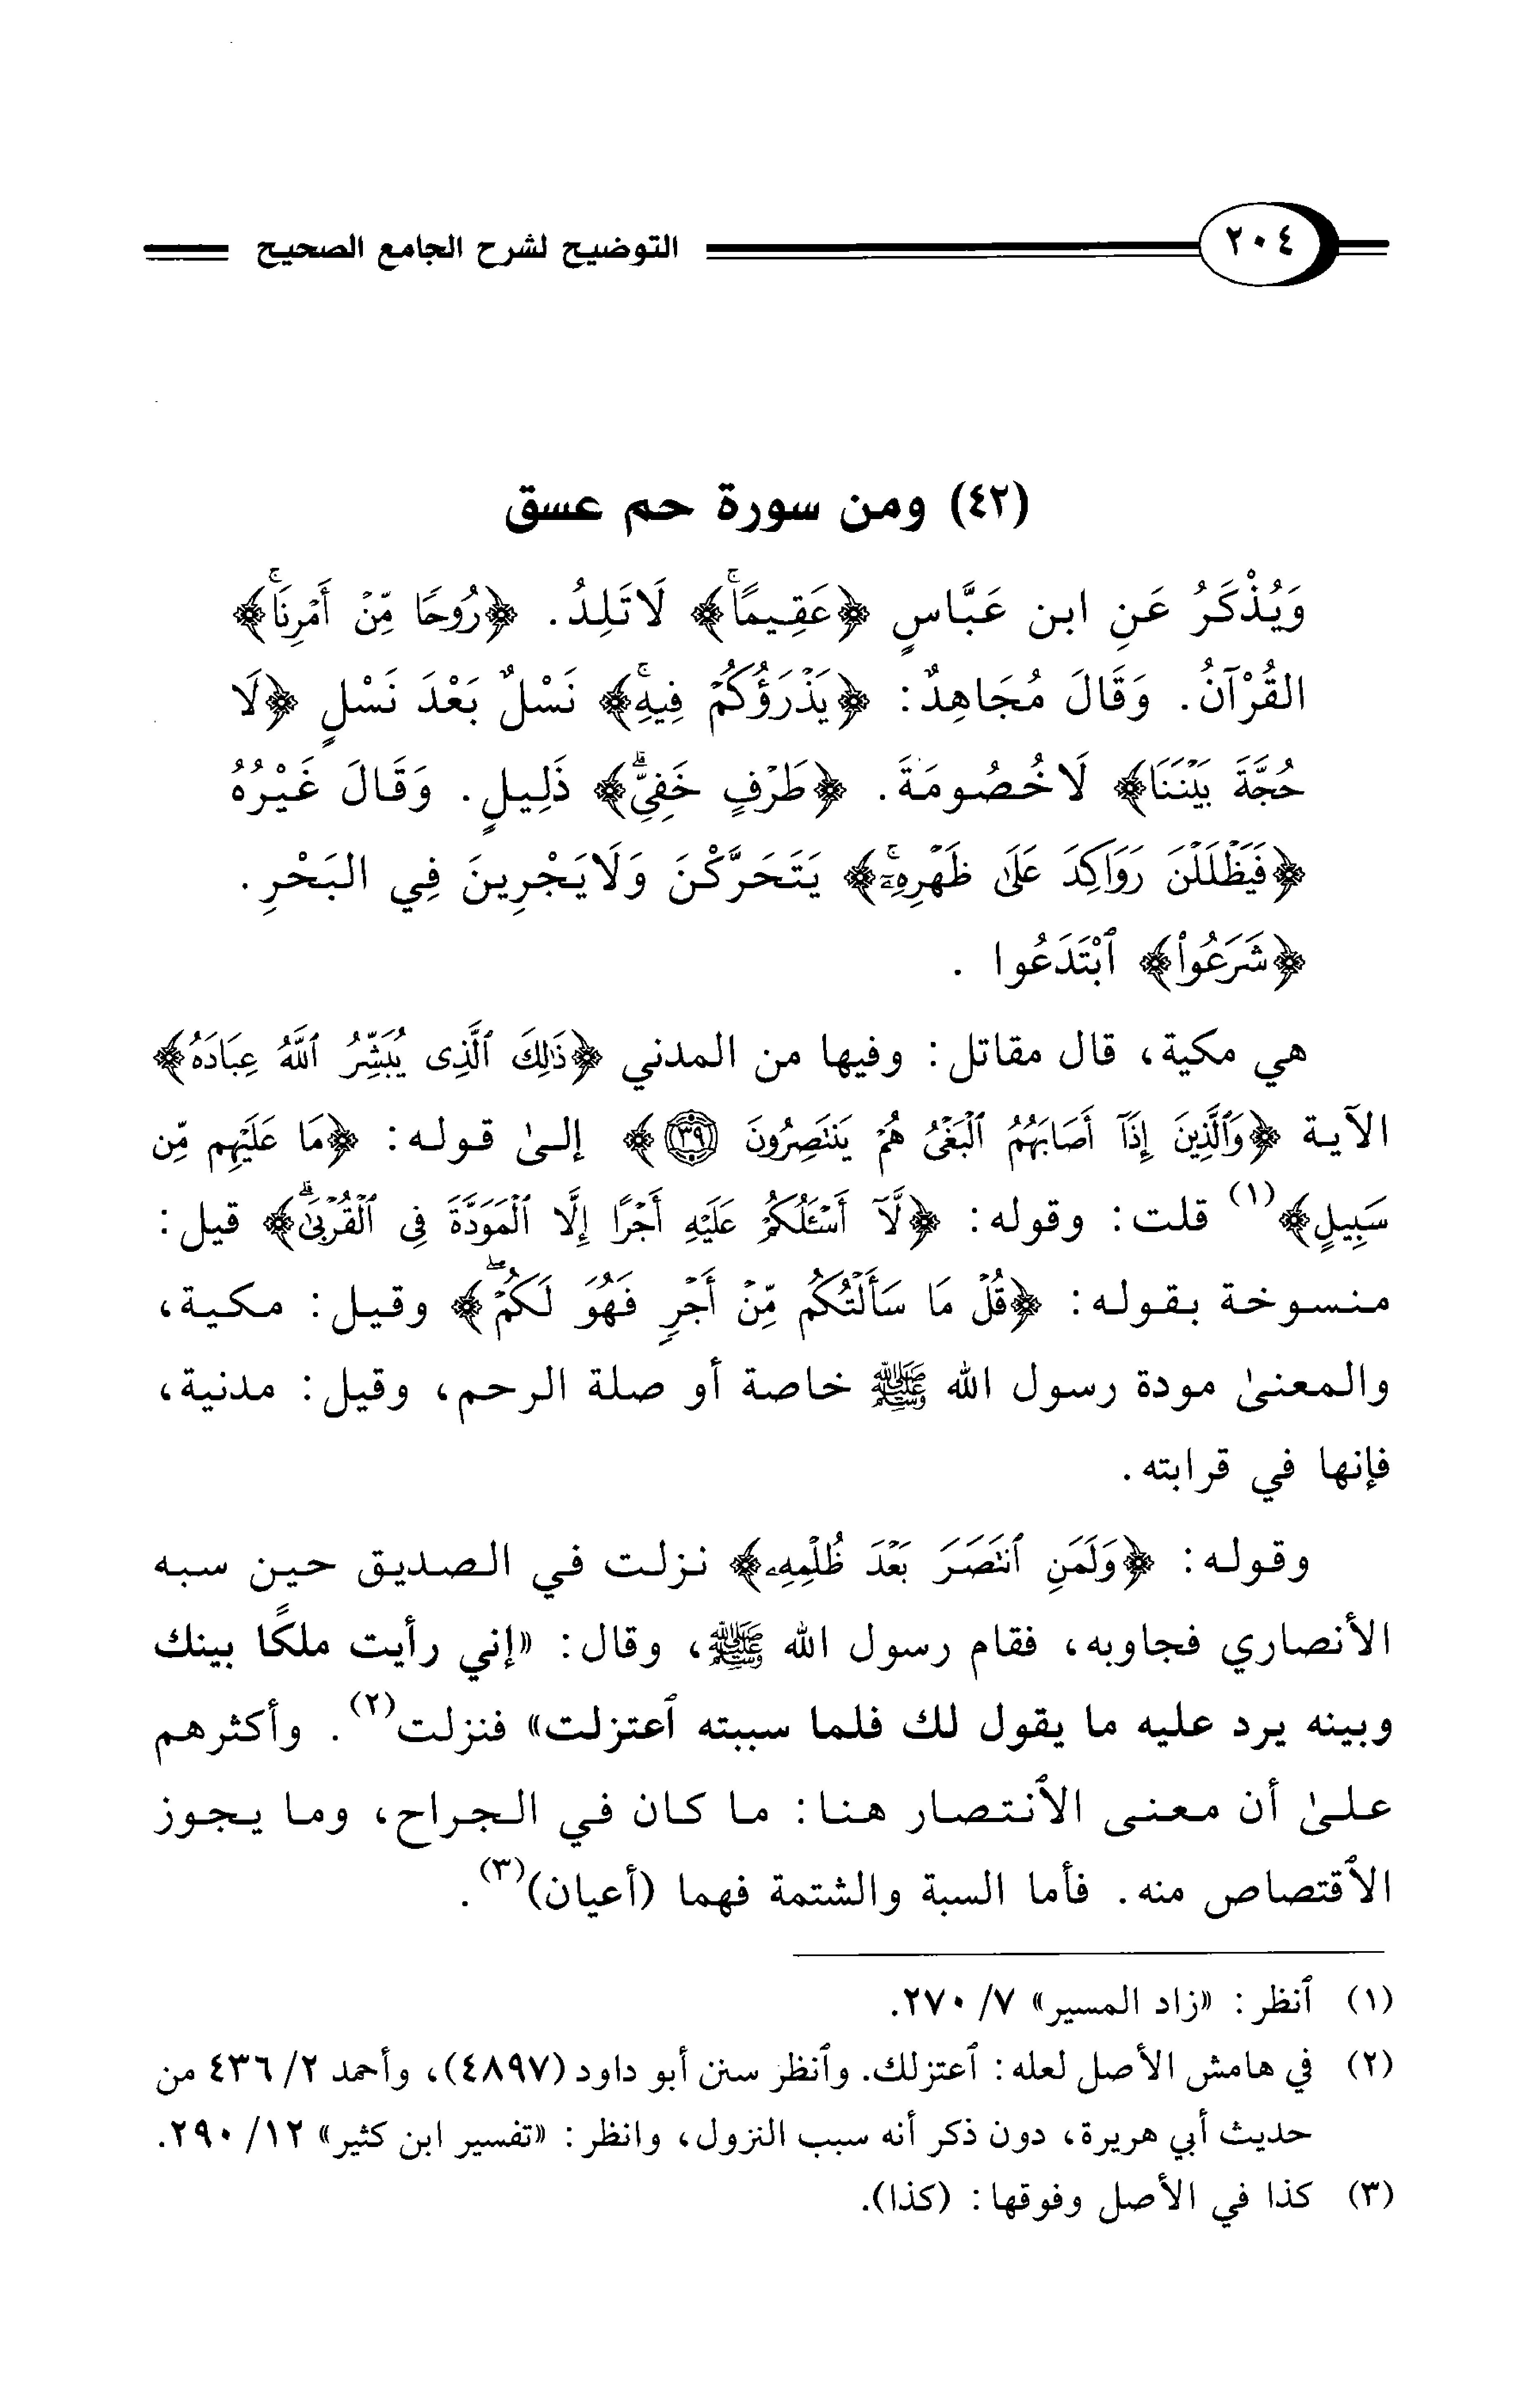 ٢٠٤ التوضيح لشرح الجامع الصحيح
(٤٢) ومن سورة حم عسق
وَيُذْكَرُ عَنِ ابن عَبَّاسٍ ﴿عَقِيمًاۚ﴾ لَا تَلِدُ. ﴿رُوحًا مِّنْ أَمْرِنَاۚ﴾
القُرْآنُ. وَقَالَ مُجَاهِدٌ: ﴿يَذْرَؤُكُمْ فِيهِۚ﴾ نَسْلٌ بَعْدَ نَسْلٍ ﴿لَا
حُجَّةَ بَيْنَنَا﴾ لَا خُصُومَةَ. ﴿طَرْفٍ خَفِيٍّۗ﴾ ذَلِيلٍ. وَقَالَ غَيْرُهُ
﴿فَيَظْلَلْنَ رَوَاكِدَ عَلَىٰ ظَهْرِهِۦٓۚ﴾ يَتَحَرَّكْنَ وَلَا يَجْرِينَ فِي البَحْرِ.
﴿شَرَعُواْ﴾ ٱبْتَدَعُوا .
هي مكية، قال مقاتل: وفيها من المدني ﴿ذَٰلِكَ ٱلَّذِى يُبَشِّرُ ٱللَّهُ عِبَادَهُ﴾
الآية ﴿وَٱلَّذِينَ إِذَآ أَصَابَهُمُ ٱلْبَغْىُ هُمْ يَنتَصِرُونَ ٣٩﴾ إلىٰ قوله: ﴿مَا عَلَيْهِم مِّن
سَبِيلٍ﴾(١) قلت: وقوله: ﴿لَّآ أَسْـَٔلُكُمْ عَلَيْهِ أَجْرًا إِلَّا ٱلْمَوَدَّةَ فِى ٱلْقُرْبَىٰۗ﴾ قيل:
منسوخة بقوله: ﴿قُلْ مَا سَأَلْتُكُم مِّنْ أَجْرٍ فَهُوَ لَكُمْۖ﴾ وقيل: مكية،
والمعنىٰ مودة رسول الله ﷺ خاصة أو صلة الرحم، وقيل: مدنية،
فإنها في قرابته.
وقوله: ﴿وَلَمَنِ ٱنتَصَرَ بَعْدَ ظُلْمِهِۦ﴾ نزلت في الصديق حين سبه
الأنصاري فجاوبه، فقام رسول الله ﷺ، وقال: «إني رأيت ملكًا بينك
وبينه يرد عليه ما يقول لك فلما سببته ٱعتزلت» فنزلت(٢). وأكثرهم
علىٰ أن معنى الٱنتصار هنا: ما كان في الجراح، وما يجوز
الٱقتصاص منه. فأما السبة والشتمة فهما (أعيان)(٣).
(١) ٱنظر: «زاد المسير» ٧/ ٢٧٠.
(٢) في هامش الأصل لعله: ٱعتزلك. وٱنظر سنن أبو داود (٤٨٩٧)، وأحمد ٢/ ٤٣٦ من
حديث أبي هريرة، دون ذكر أنه سبب النزول، وانظر: «تفسير ابن كثير» ١٢/ ٢٩٠.
(٣) كذا في الأصل وفوقها: (كذا).